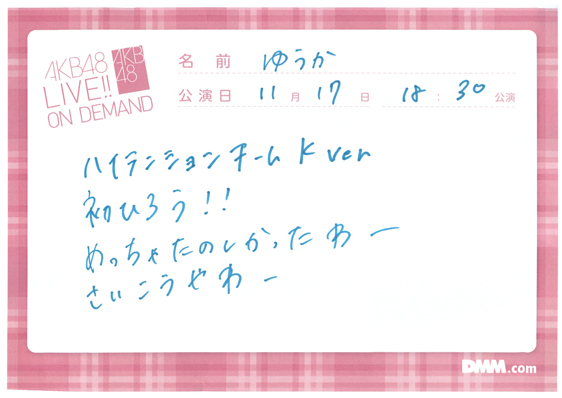 AKB48
LIVE!!
ON DEMAND
AKB
48
名前 ゆうか
公演日 11月17日 18:30公演
ハイテンションチームK ver
初ひろう!!
めっちゃたのしかったわー
さいこうやわー
DMM.com